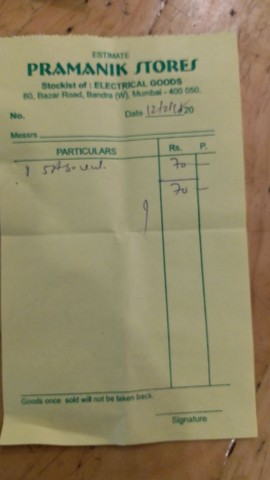 ESTIMATE
PRAMANIK STORES
Stockist of : ELECTRICAL GOODS
80, Bazar Road, Bandra (W), Mumbai - 400 050.
No. Date 20
Messrs
PARTICULARS Rs. P.
1 70 —
70 —
Goods once sold will not be taken back.
Signature